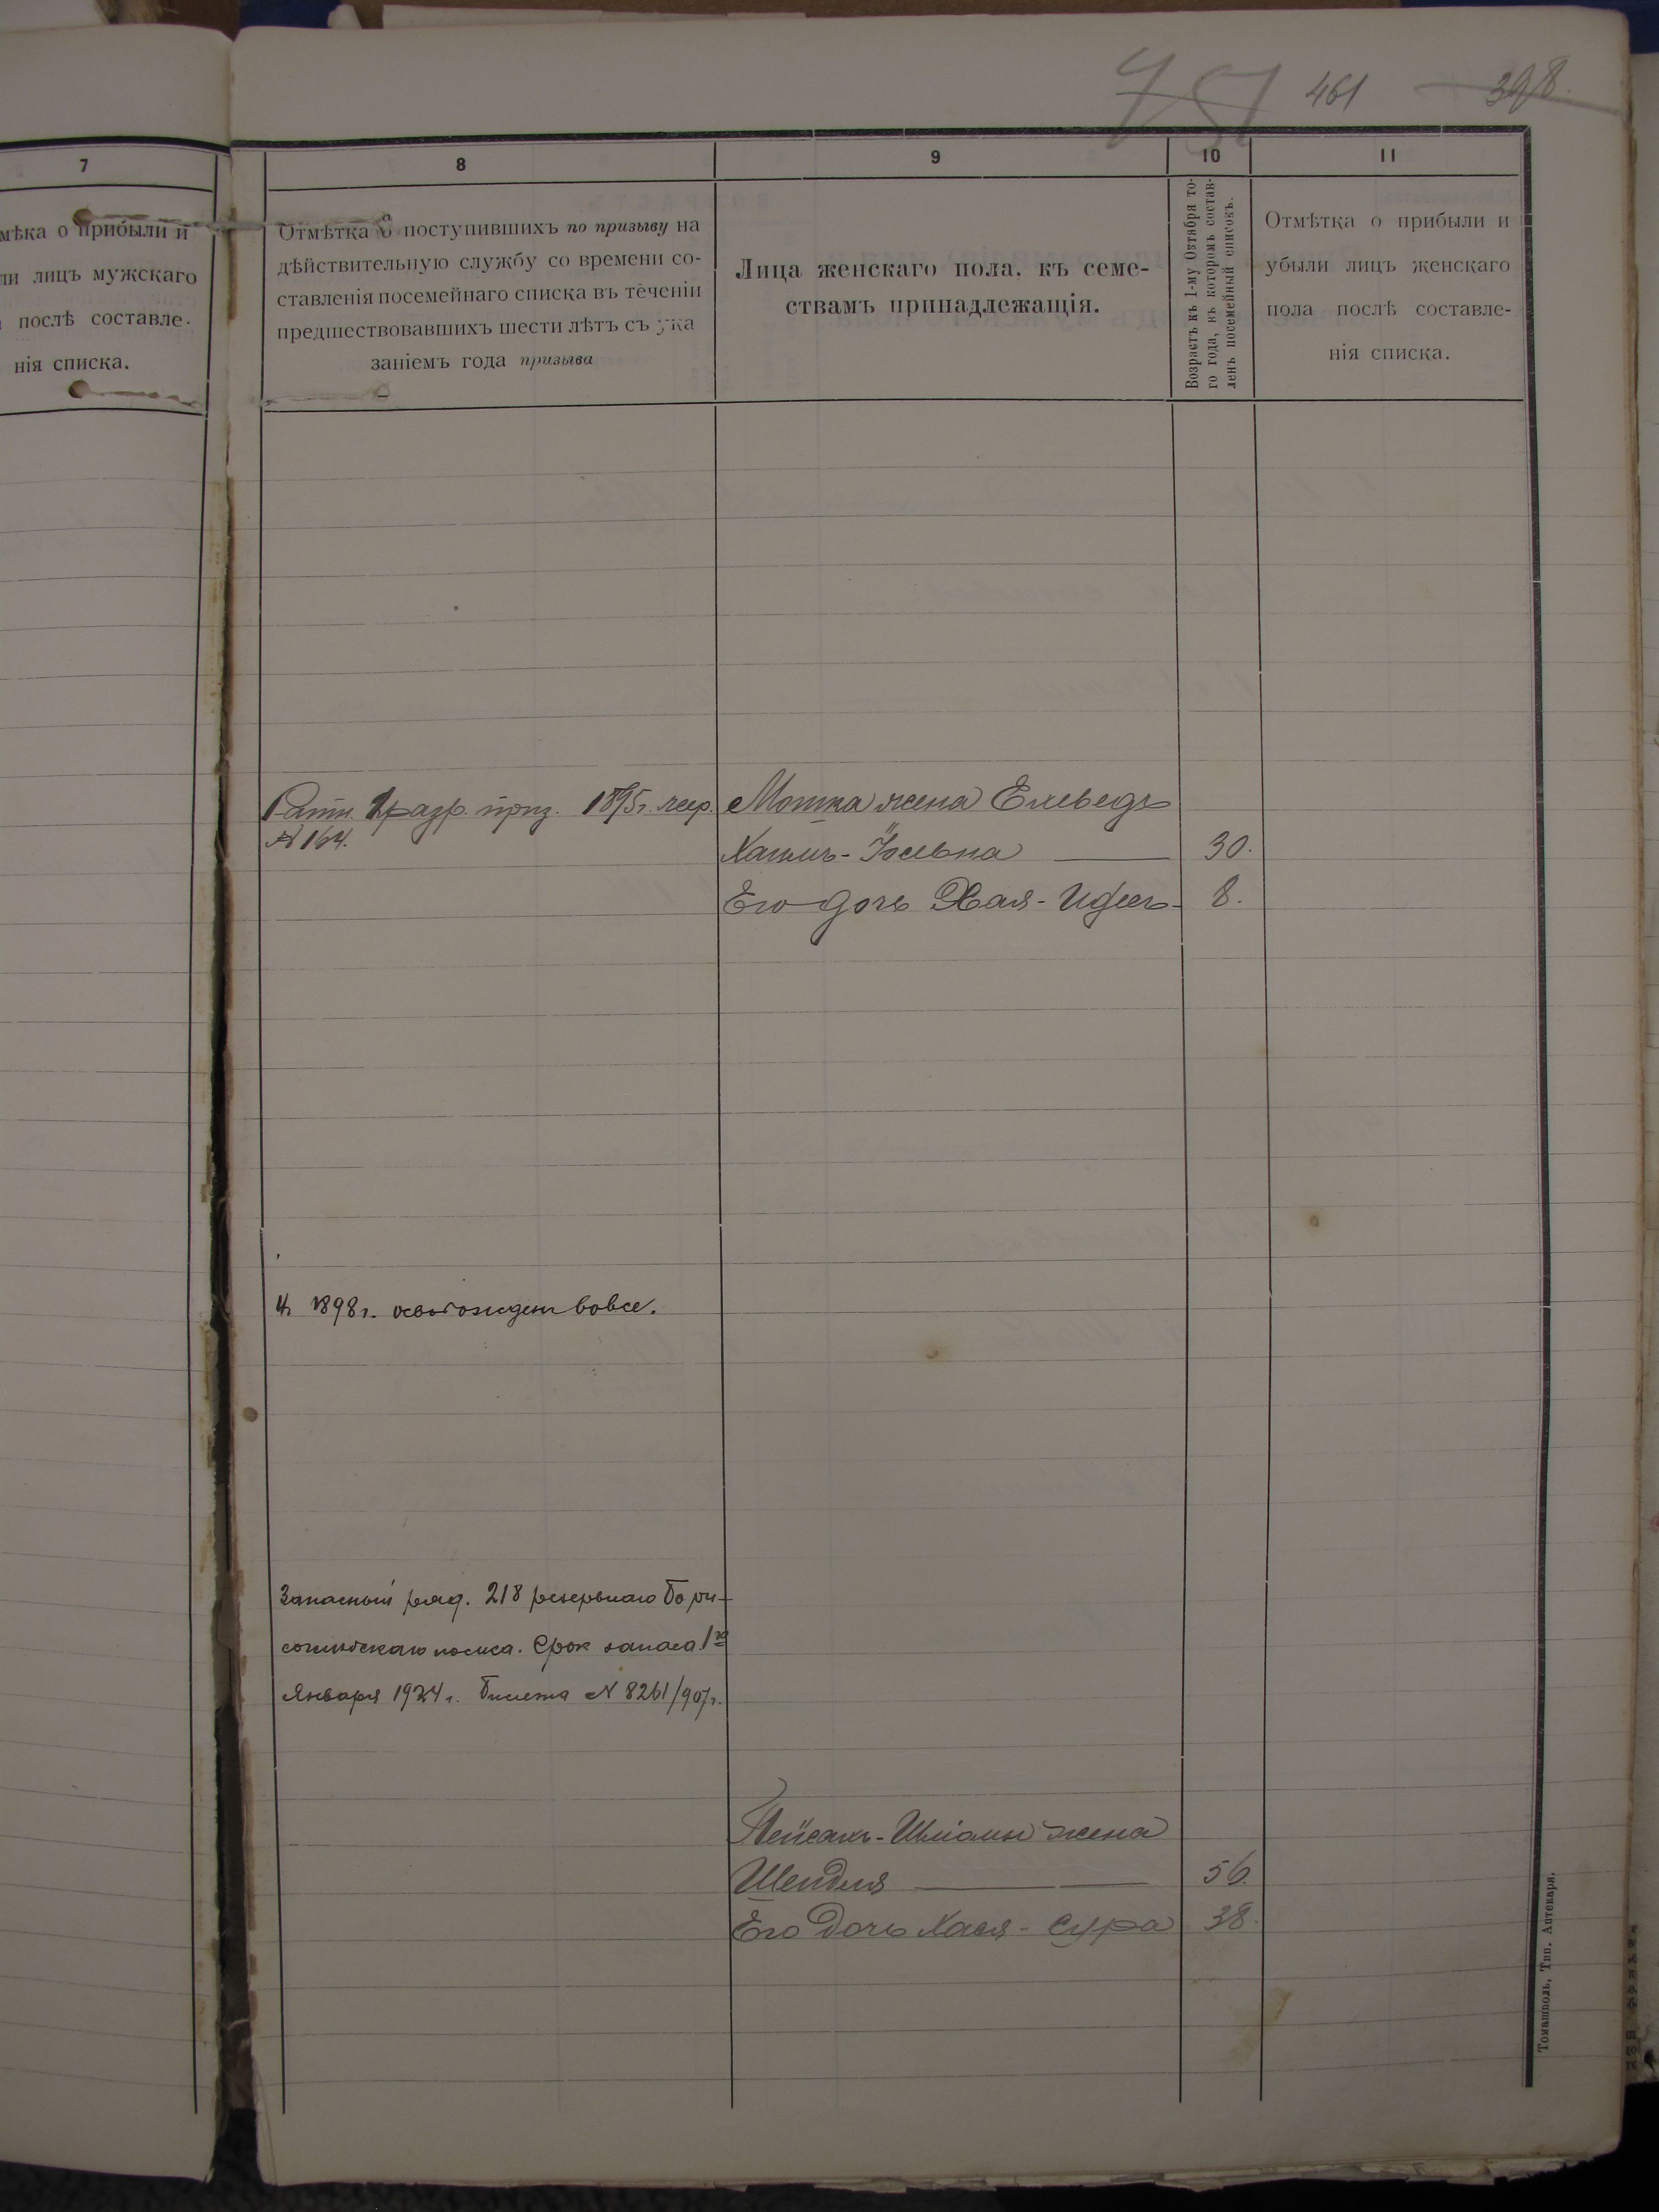 461 398
7
мѣка о прибыли и
ли лицъ мужскаго
послѣ составле-
нія списка.
8
Отмѣтка о поступившихъ по призыву на
дѣйствительную службу со времени со-
ставленія посемейнаго списка въ теченіи
предшествовавшихъ шести лѣтъ съ ука
заніемъ года призыва
9
Лица женскаго пола. къ семе-
ствамъ принадлежащія.
10
Возрастъ къ 1-му Октября то-
го года, къ которомъ состав-
ленъ посемейный списокъ.
11
Отмѣтка о прибыли и
убыли лицъ женскаго
пола послѣ составле-
нія списка.
Ратн. разр. приз. 1895г. жер.
№ 164.
Мошка жена
30.
Его дочь Хая- 8.
1898г. освобожден вовсе.
Запасный ряд. 218 резервнаго Бори-
соглѣбскаго полка. Срок запаса 1го
Января 1924г. Билета № 8261/907г.
Пейсахъ- жена
Шейдля 56.
Его дочь Хася-Сура 38.
Томашполь, Тип. Аптекаря.